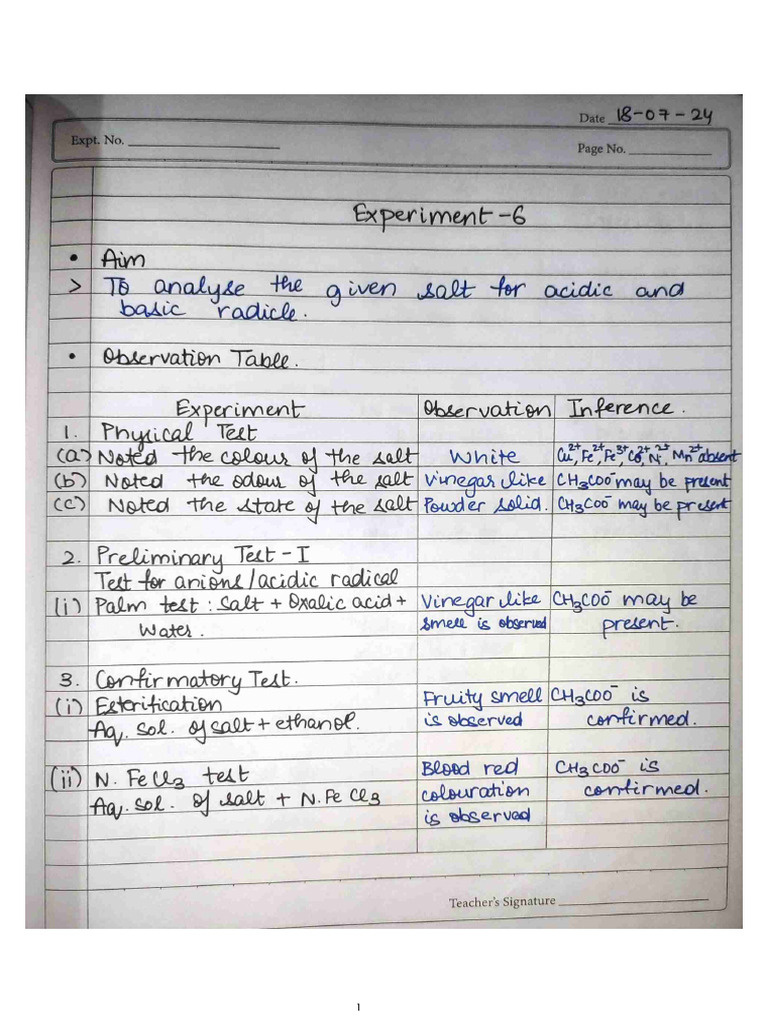 Date 18-07-24
Expt. No.
Page No.
Experiment-6
• Aim
> To analyse the given salt for acidic and
basic radicle.
• Observation Table.
Experiment Observation Inference.
1. Physical Test
(a) Noted the colour of the salt White Cu²⁺, Fe²⁺, Fe³⁺, Co²⁺, Ni²⁺, Mn²⁺ absent
(b) Noted the odour of the salt Vinegar like CH₃COO⁻ may be present
(c) Noted the state of the salt Powder solid. CH₃COO⁻ may be present
2. Preliminary Test - I
Test for anions/acidic radical
(i) Palm test : Salt + Oxalic acid + Vinegar like CH₃COO⁻ may be
Water. smell is observed present.
3. Confirmatory Test.
(i) Esterification Fruity smell CH₃COO⁻ is
Aq. sol. of salt + ethanol. is observed confirmed.
(ii) N. FeCl₃ test Blood red CH₃COO⁻ is
Aq. sol. of salt + N.FeCl₃ colouration confirmed.
is observed
Teacher's Signature
1